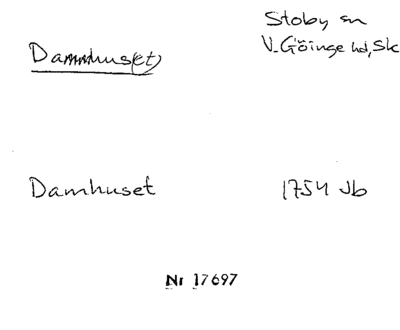 Stoby sn
V. Göinge hd, Sk
Dammhus(et)
Damhuset 1754 Jb
Nr 17697